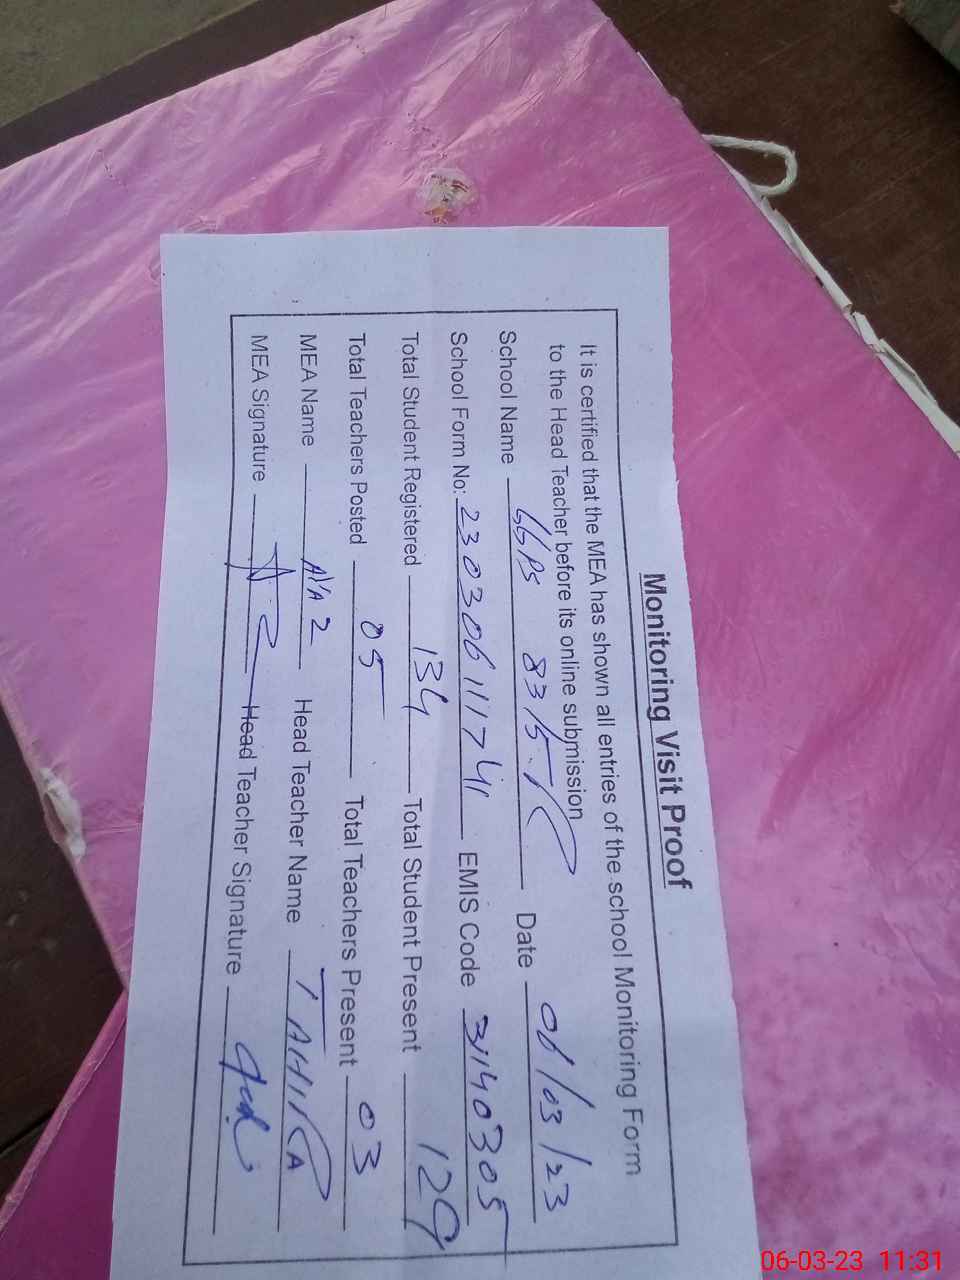 Monitoring Visit Proof
It is certified that the MEA has shown all entries of the school Monitoring Form
to the Head Teacher before its online submission
School Name GGPS 83/5-R Date 06/03/23
School Form No: 230306111741 EMIS Code 31140305
Total Student Registered 134 Total Student Present 129
Total Teachers Posted 05 Total Teachers Present 03
MEA Name Head Teacher Name TAHIRA
MEA Signature Head Teacher Signature
06-03-23 11:31